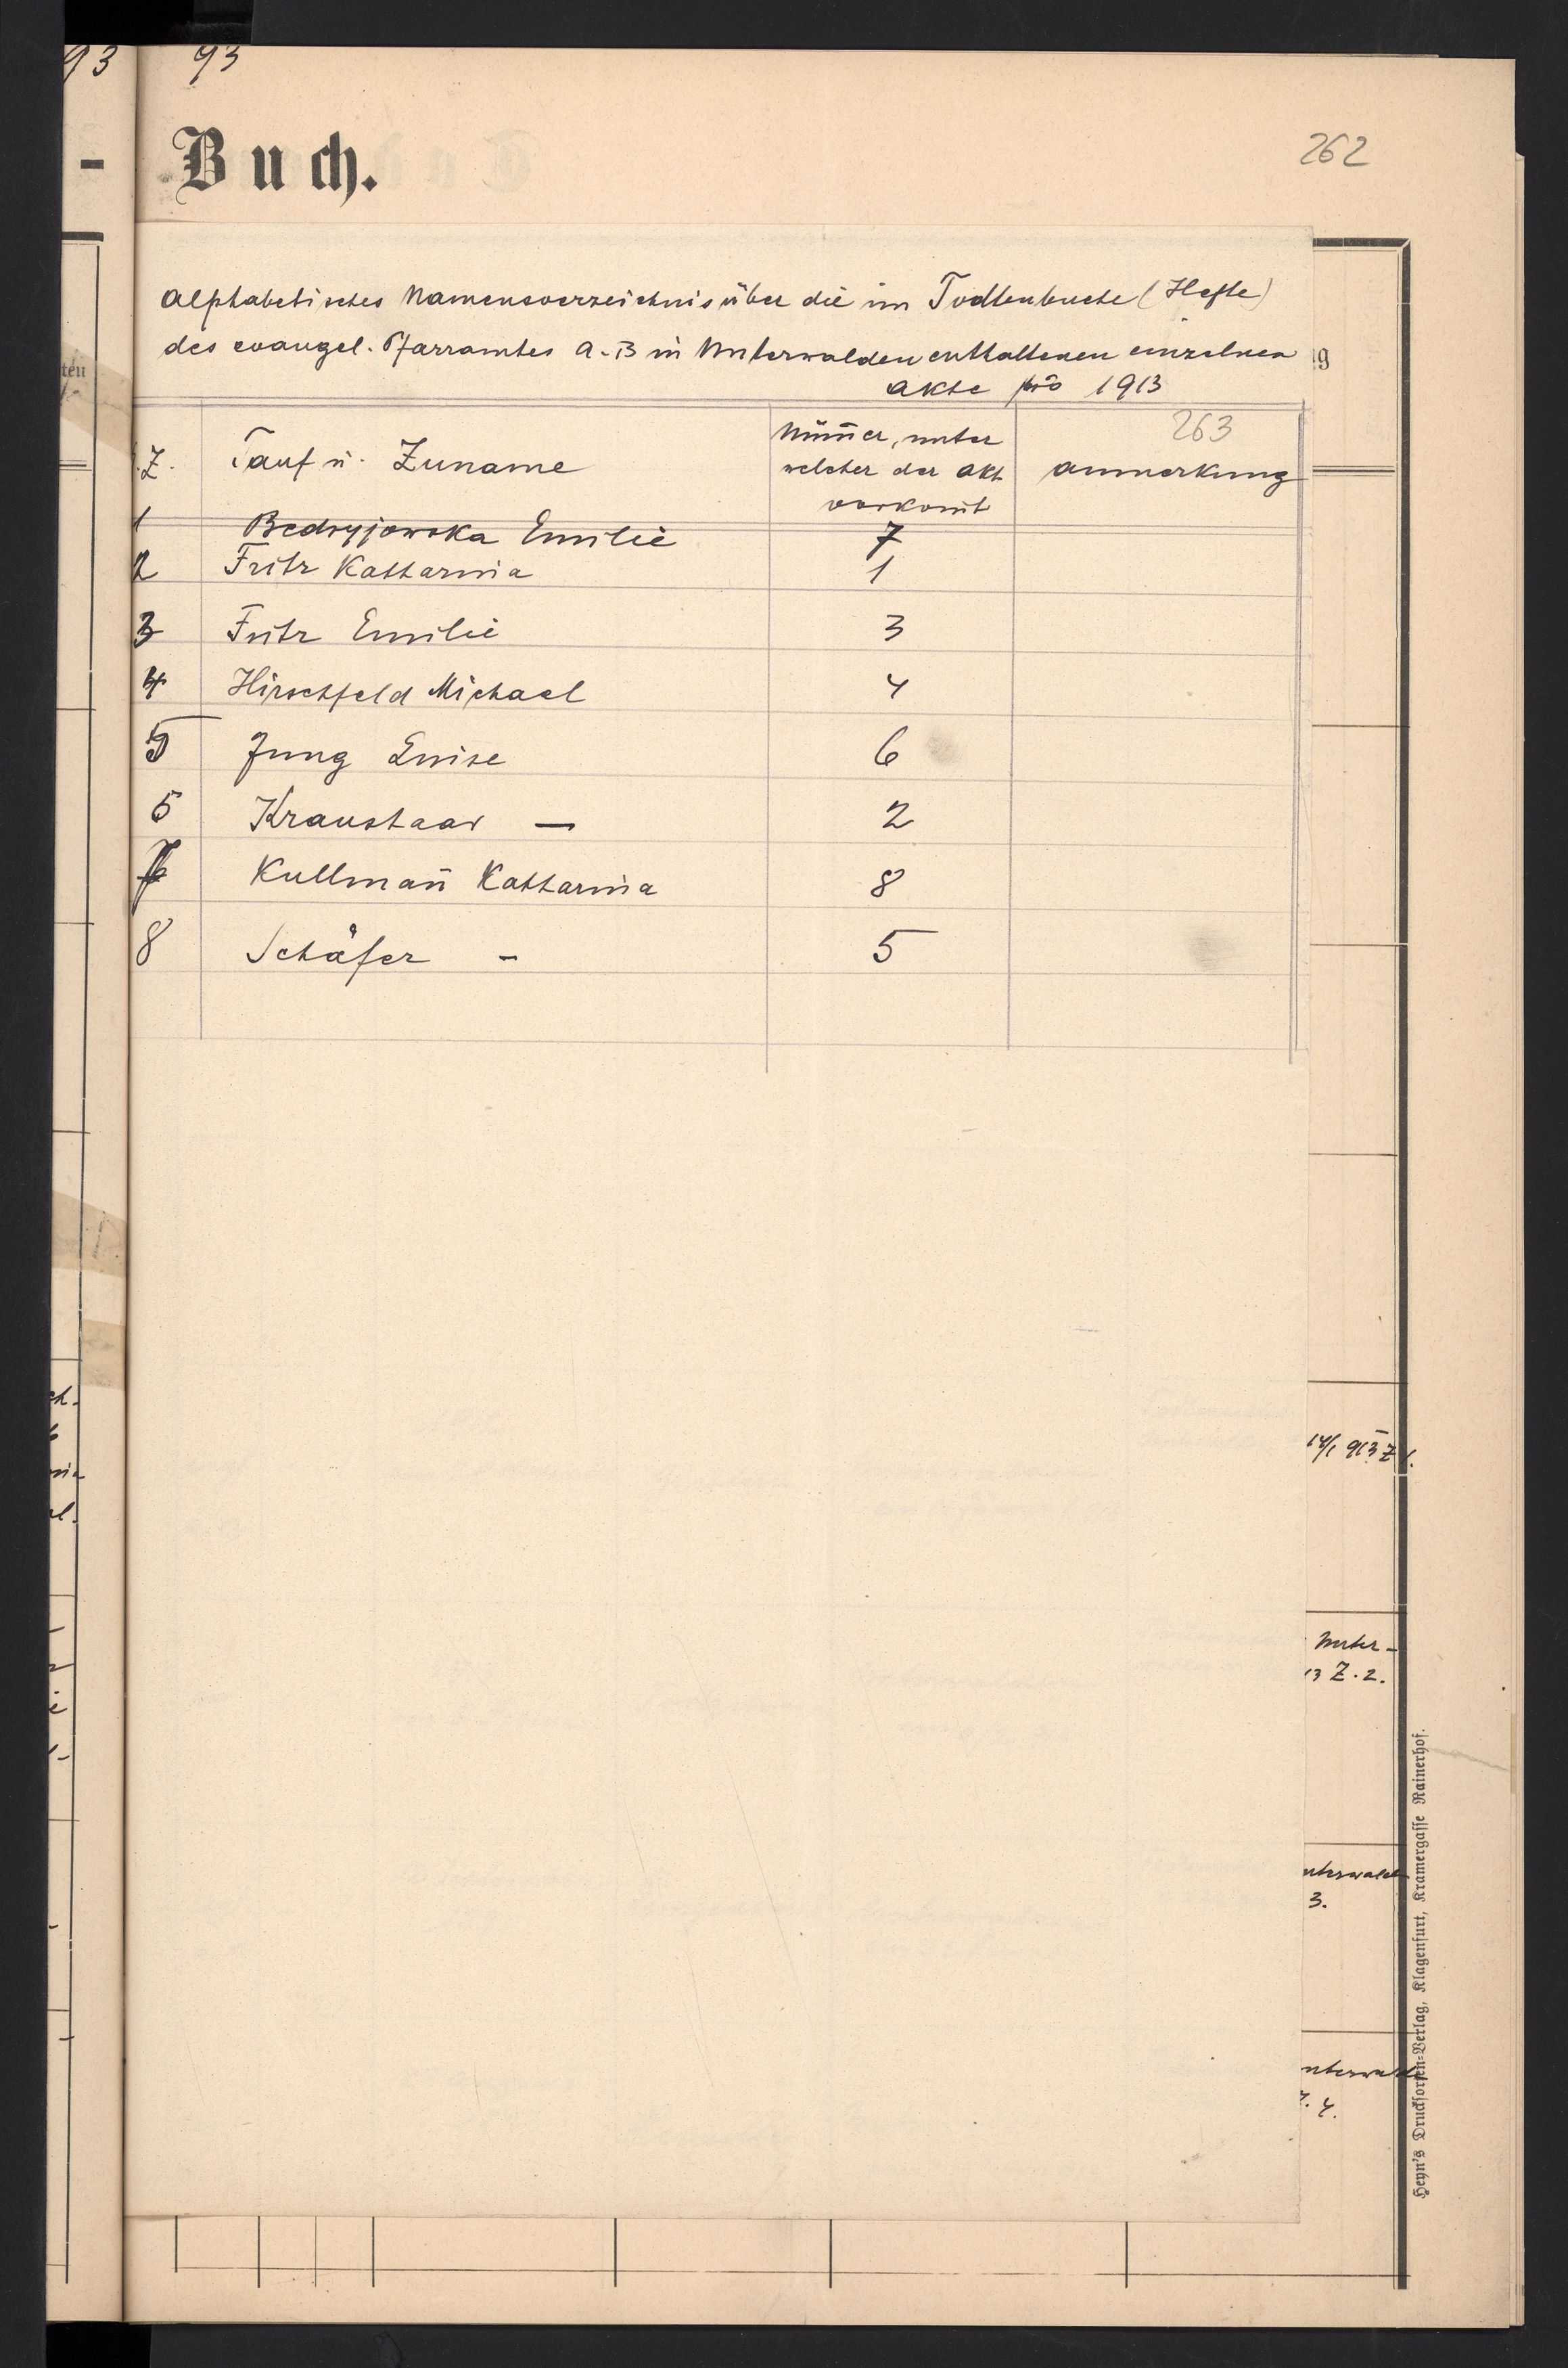 93 93
Buch.
262
Alphabetisches Namensverzeichnis über die im Todtenbuche (Hefte)
des evangel. Pfarramtes A.B in Unterwalden enthaltenen einzelnen
Akte pro 1913
263
Z. Tauf u. Zuname Num̄er, unter welcher der Akt vorkom̄t Anmerkung
1 Bedryjowska Emilie 7
2 Fritz Katharina 1
3 Fritz Emilie 3
4 Hirschfeld Michael 4
5 Jung Luise 6
6 Kraushaar — 2
7 Kullman̄ Katharina 8
8 Schäfer - 5
14/1 913 Z 1.
Unter-
13 Z. 2.
nterwald
3.
nterwald
Z. 4.
Heyn's Drucksorten-Verlag, Klagenfurt, Kramergasse Rainerhof.